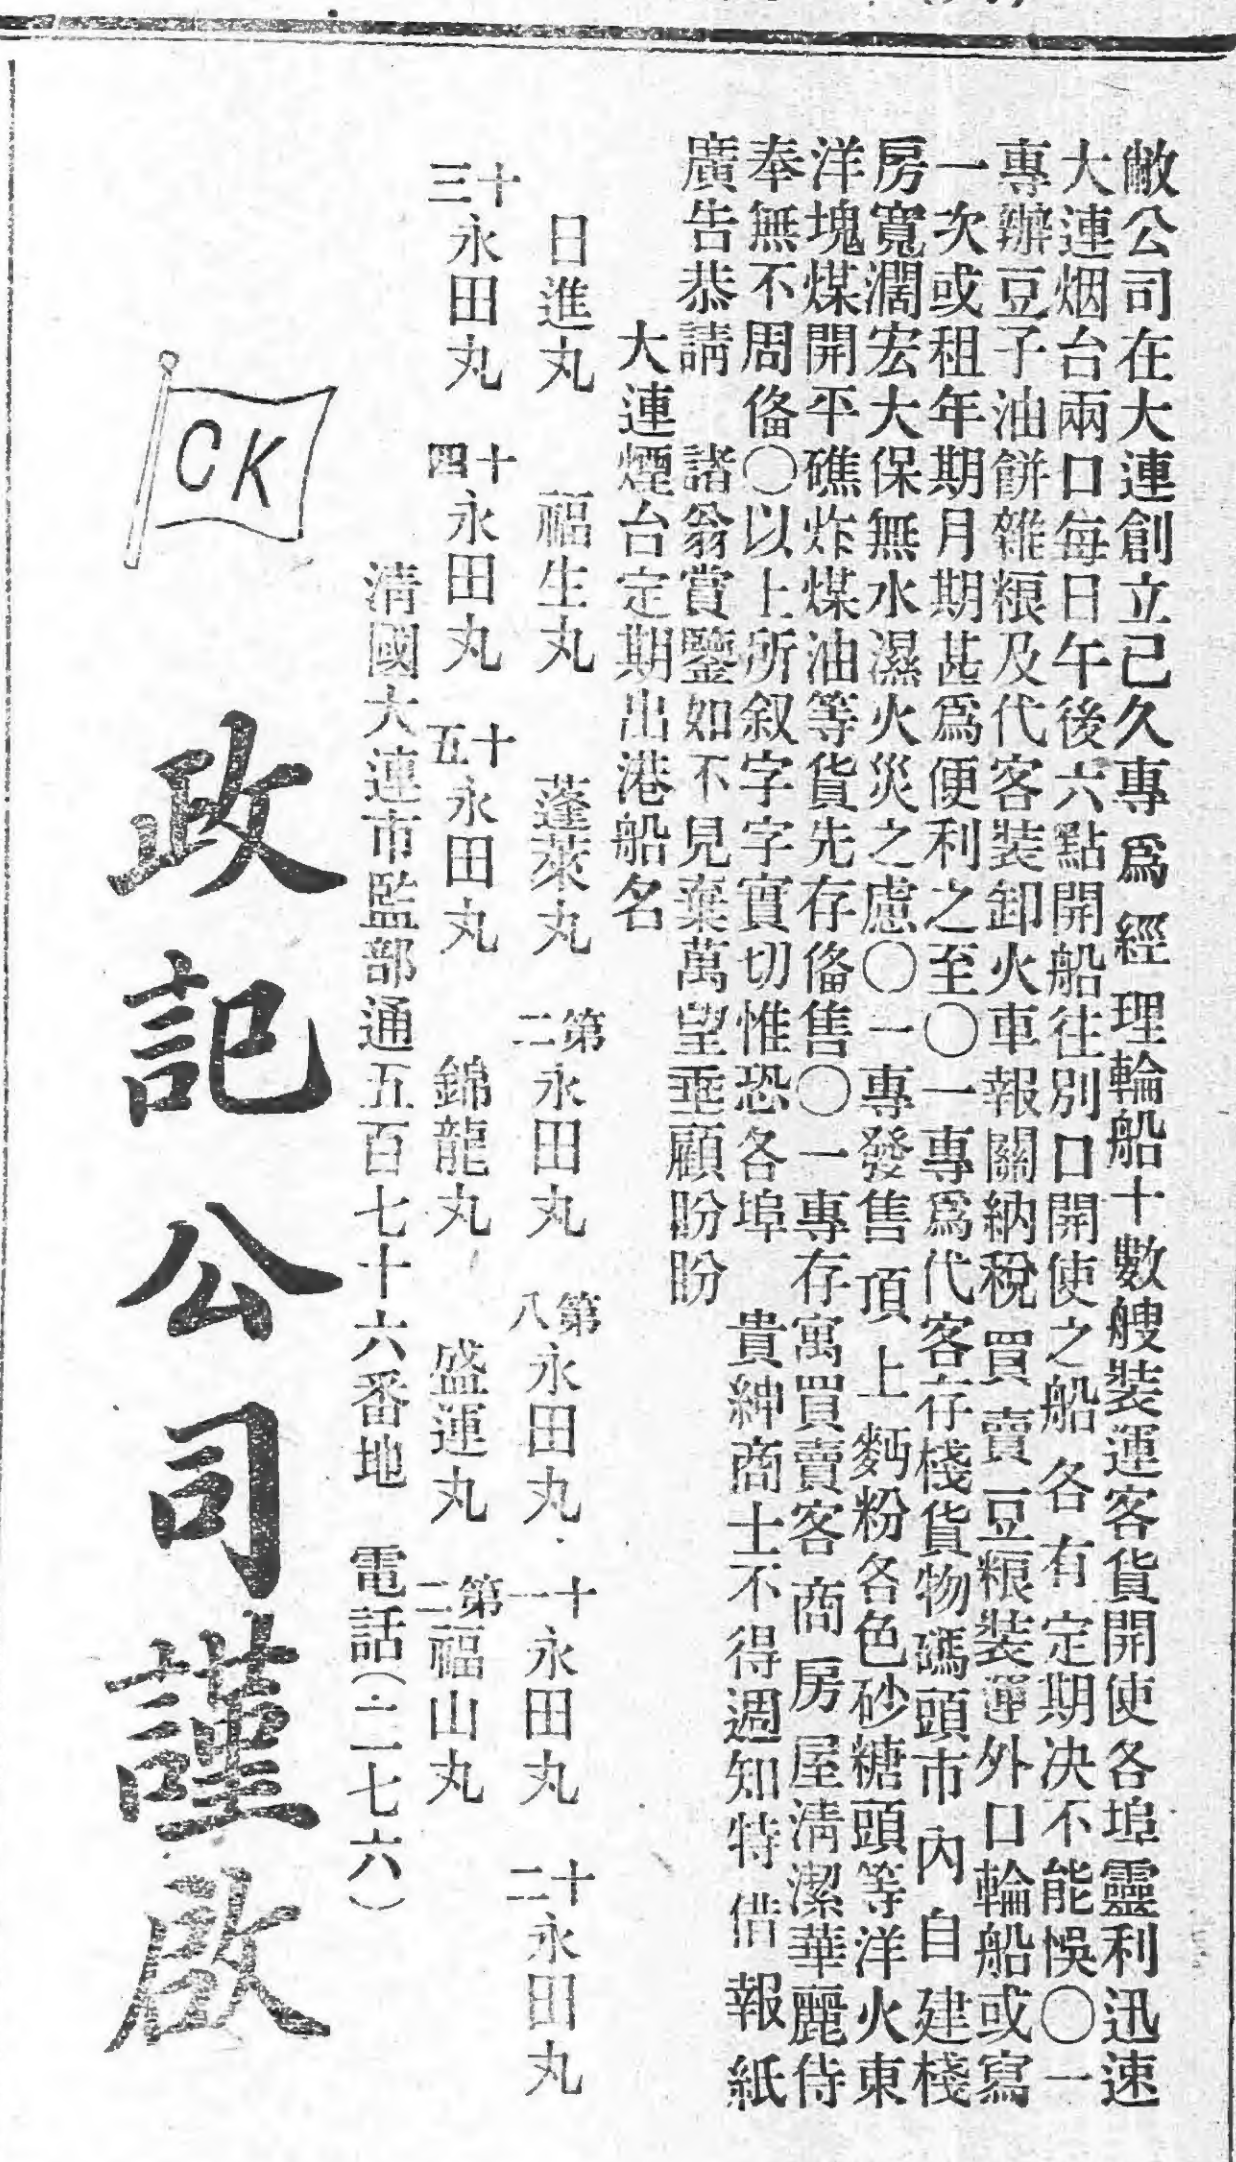 敝公司在大連創立已久專爲經理輪船十數艘裝運客貨開使各埠靈利迅速
大連烟台兩口每日午後六點開船往別口開使之船各有定期決不能悞〇一
專辦豆子油餅雜粮及代客裝卸火車報關納稅買賣豆粮裝運外口輪船或寫
一次或租年期月期甚爲便利之至〇一專爲代客存棧貨物碼頭市內自建棧
房寬濶宏大保無水濕火災之慮〇一專發售頂上麫粉各色砂糖頭等洋火東
洋塊煤開平礁炸煤油等貨先存俻售〇一專存寓買賣客商房屋淸潔華麗侍
奉無不周俻〇以上所叙字字實切惟恐各埠 貴紳商士不得週知特借報紙
廣告恭請 諸翁賞鑒如不見棄萬望垂顧盼盼
大連煙台定期出港船名
日進丸 福生丸 蓬萊丸 第二永田丸 第八永田丸 十一永田丸 十二永田丸
十三永田丸 十四永田丸 十五永田丸 錦龍丸 盛運丸 第二福山丸
淸國大連市監部通五百七十六番地 電話(二七六)
CK
政記公司謹啟